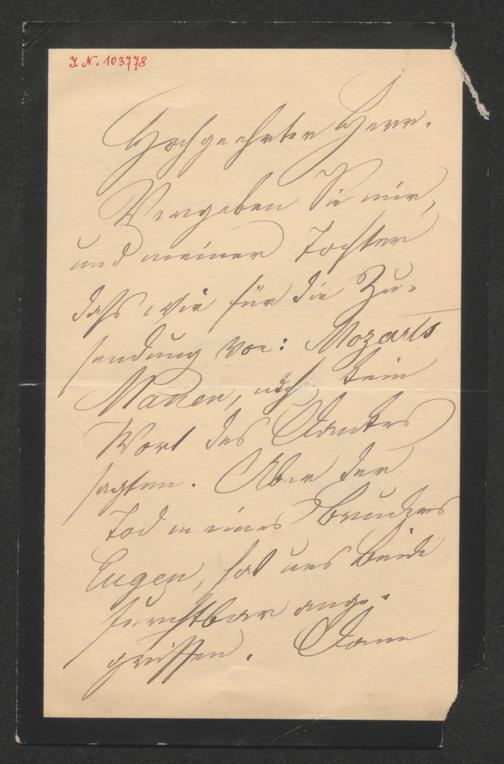 J. N. 103778
Hochgeehrter Herr.
Vergeben Sie mir,
und meiner Tochter
daß wir für die Zu-
sendung von: Mozarts
Manen, noch kein
Wort des Dankes
sagten. Aber der
Tod meines Bruders
Eugen, hat uns beide
furchtbar ange-
griffen. Dann